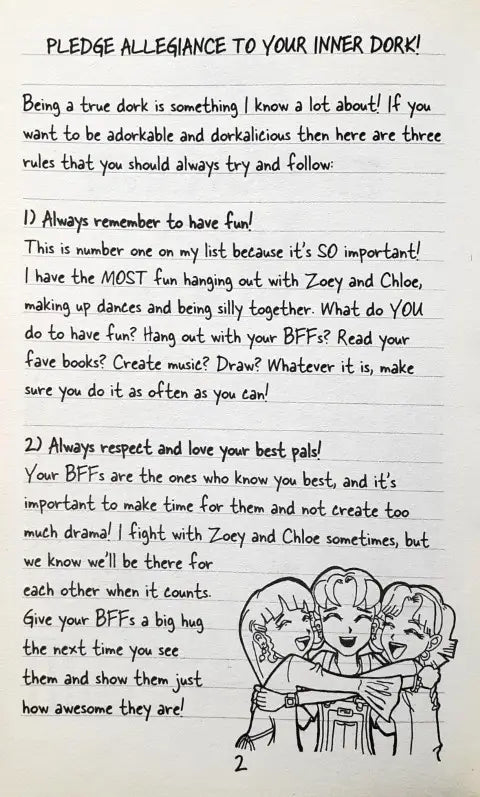 PLEDGE ALLEGIANCE TO YOUR INNER DORK!
Being a true dork is something I know a lot about! If you
want to be adorkable and dorkalicious then here are three
rules that you should always try and follow:
1) Always remember to have fun!
This is number one on my list because it's SO important!
I have the MOST fun hanging out with Zoey and Chloe,
making up dances and being silly together. What do YOU
do to have fun? Hang out with your BFFs? Read your
fave books? Create music? Draw? Whatever it is, make
sure you do it as often as you can!
2) Always respect and love your best pals!
Your BFFs are the ones who know you best, and it's
important to make time for them and not create too
much drama! I fight with Zoey and Chloe sometimes, but
we know we'll be there for
each other when it counts.
Give your BFFs a big hug
the next time you see
them and show them just
how awesome they are!
2